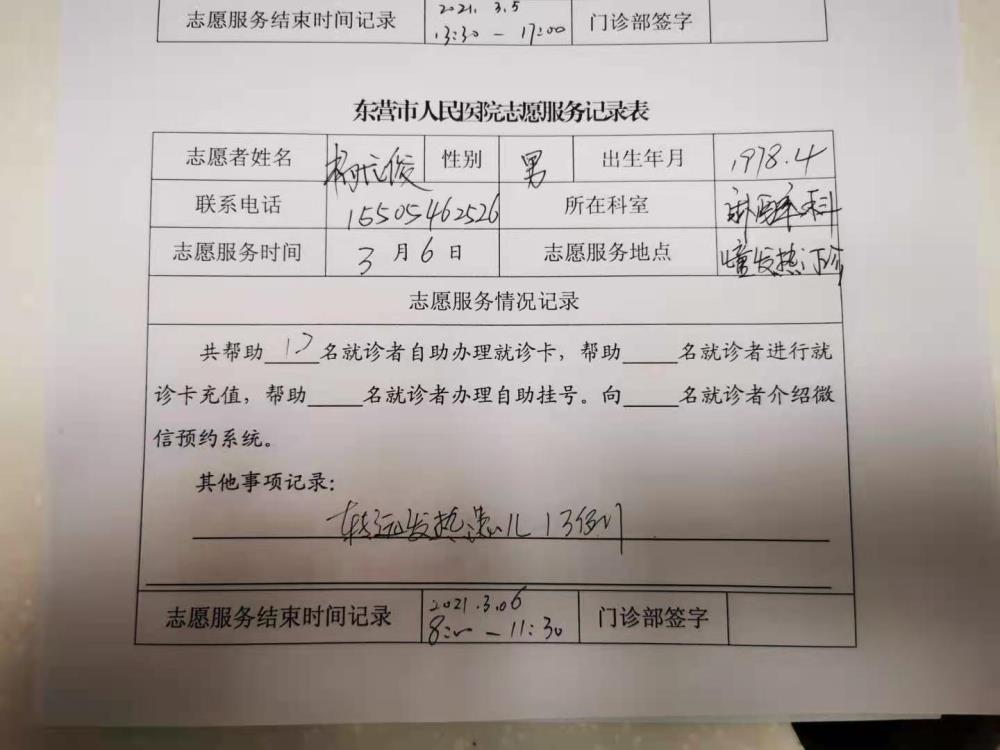 志愿服务结束时间记录 2021. 3.5 13:30 - 17:00 门诊部签字
东营市人民医院志愿服务记录表
志愿者姓名 性别 男 出生年月 1978.4
联系电话 15505462526 所在科室 科
志愿服务时间 3月6日 志愿服务地点 发热门诊
志愿服务情况记录
共帮助 名就诊者自助办理就诊卡，帮助____名就诊者进行就
诊卡充值，帮助____名就诊者办理自助挂号。向____名就诊者介绍微
信预约系统。
其他事项记录：
转运发热患儿13例
志愿服务结束时间记录 2021.3.06 8:00 - 11:30 门诊部签字